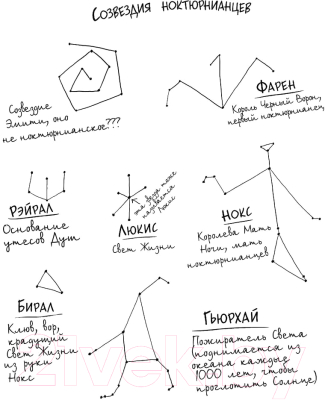 Созвездия ноктюрнианцев
Фарен
Король Черный Ворон,
первый ноктюрнианец
Созвездие
Эмити, оно
не ноктюрнианское???
Рэйрал
Основание
утесов Душ
Люкис
Свет Жизни
эта звезда тоже
называется
Люкис
Нокс
Королева Мать
Ночи, мать
ноктюрнианцев
Бирал
Клюв, вор,
крадущий
Свет Жизни
из руки
Нокс
Гьюрхай
Пожиратель Света
(поднимается из
океана каждые
1000 лет, чтобы
проглотить Солнце)